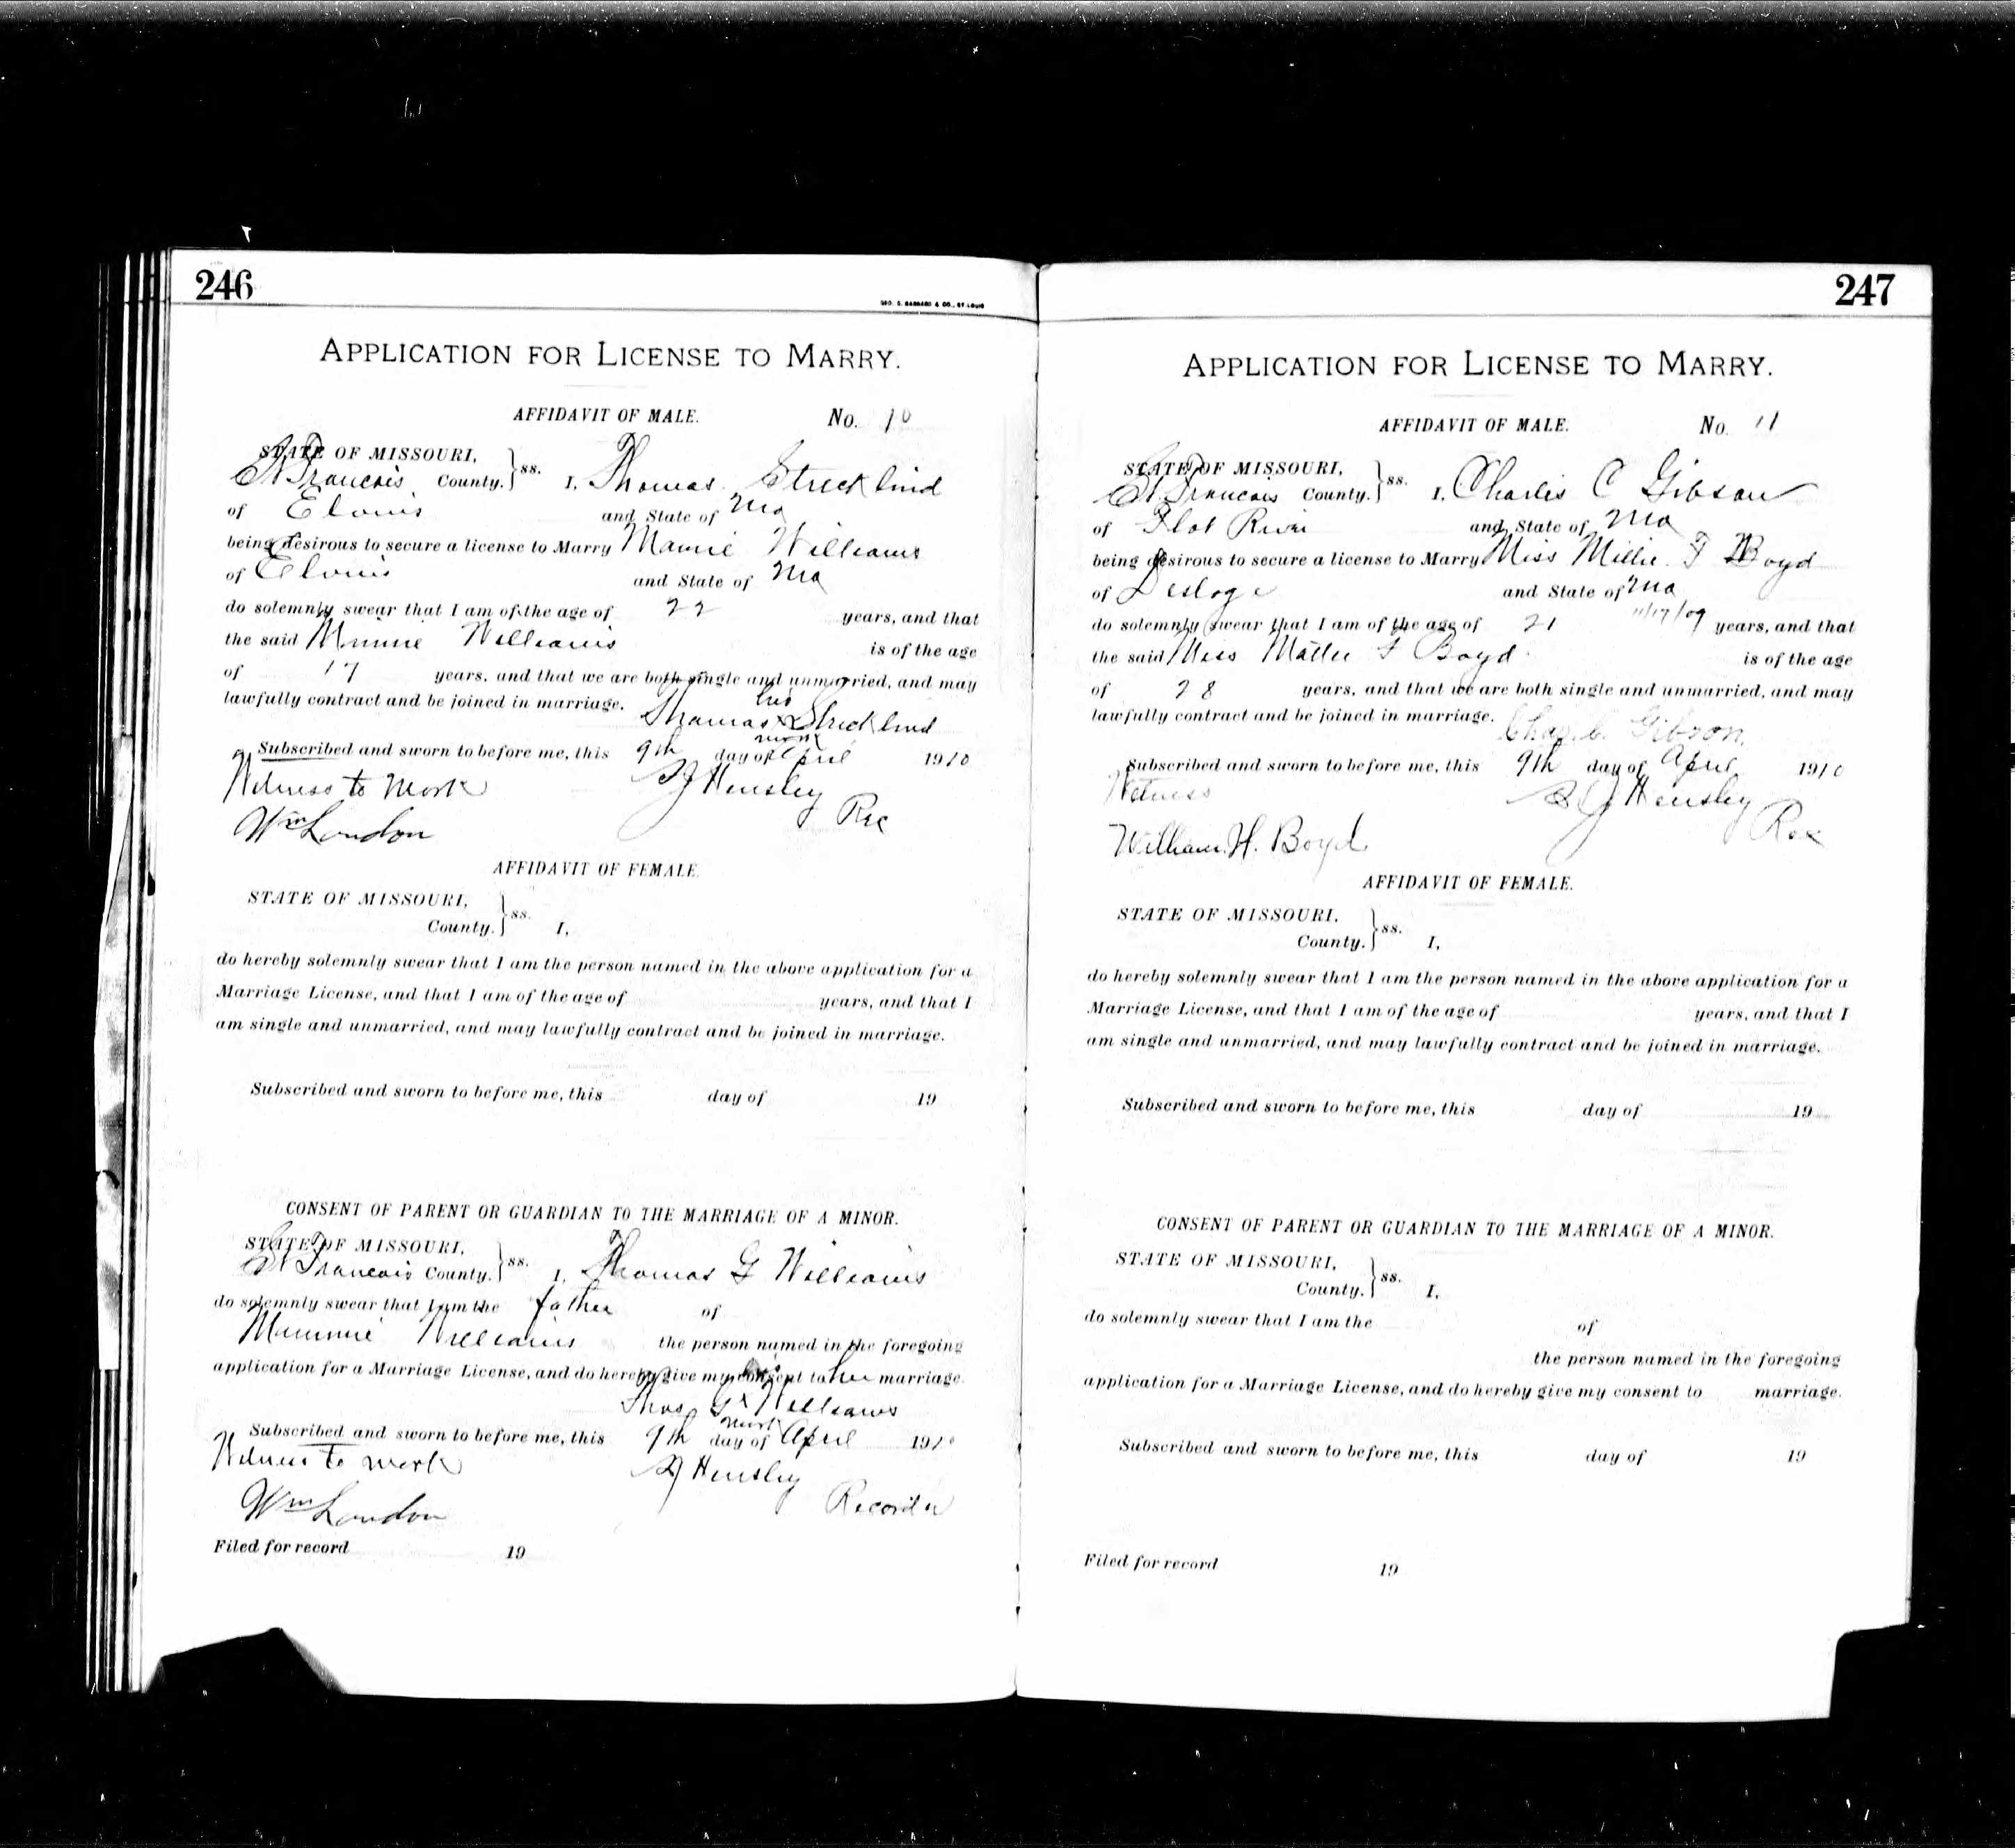 246
GEO. D. BARNARD & CO., ST. LOUIS
APPLICATION FOR LICENSE TO MARRY.
AFFIDAVIT OF MALE. No. 10
STATE OF MISSOURI,
St Francois County. } ss. I, Thomas Stricklind
of Elvins and State of Mo
being desirous to secure a license to Marry Mamie Williams
of Elvins and State of Mo
do solemnly swear that I am of the age of 22 years, and that
the said Minnie Williams is of the age
of 17 years, and that we are both single and unmarried, and may
lawfully contract and be joined in marriage.
his
Thomas x Stricklind
mark
Subscribed and sworn to before me, this 9th day of April 1910
Witness to Mark
Hensley
Wm London Rec
AFFIDAVIT OF FEMALE.
STATE OF MISSOURI,
County. } ss. I,
do hereby solemnly swear that I am the person named in the above application for a
Marriage License, and that I am of the age of years, and that I
am single and unmarried, and may lawfully contract and be joined in marriage.
Subscribed and sworn to before me, this day of 19
CONSENT OF PARENT OR GUARDIAN TO THE MARRIAGE OF A MINOR.
STATE OF MISSOURI,
St Francois County. } ss. I, Thomas G Williams
do solemnly swear that I am the father of
Mimmie Williams the person named in the foregoing
application for a Marriage License, and do hereby give my consent to her marriage.
his
Thos G x Williams
mark
Subscribed and sworn to before me, this 9th day of April 1910
Witness to mark
Hensley
Wm London Recorder
Filed for record 19
247
APPLICATION FOR LICENSE TO MARRY.
AFFIDAVIT OF MALE. No. 11
STATE OF MISSOURI,
St Francois County. } ss. I, Charles C Gibson
of Flat River and State of Mo
being desirous to secure a license to Marry Miss Millie F Boyd
of Desloge and State of Mo
do solemnly swear that I am of the age of 21 11/17/09 years, and that
the said Miss Mattie F Boyd is of the age
of 28 years, and that we are both single and unmarried, and may
lawfully contract and be joined in marriage.
Chas. C. Gibson.
Subscribed and sworn to before me, this 9th day of April 1910
Witness
Hensley
William. H. Boyd Rec
AFFIDAVIT OF FEMALE.
STATE OF MISSOURI,
County. } ss. I,
do hereby solemnly swear that I am the person named in the above application for a
Marriage License, and that I am of the age of years, and that I
am single and unmarried, and may lawfully contract and be joined in marriage.
Subscribed and sworn to before me, this day of 19
CONSENT OF PARENT OR GUARDIAN TO THE MARRIAGE OF A MINOR.
STATE OF MISSOURI,
County. } ss. I,
do solemnly swear that I am the of
the person named in the foregoing
application for a Marriage License, and do hereby give my consent to marriage.
Subscribed and sworn to before me, this day of 19
Filed for record 19